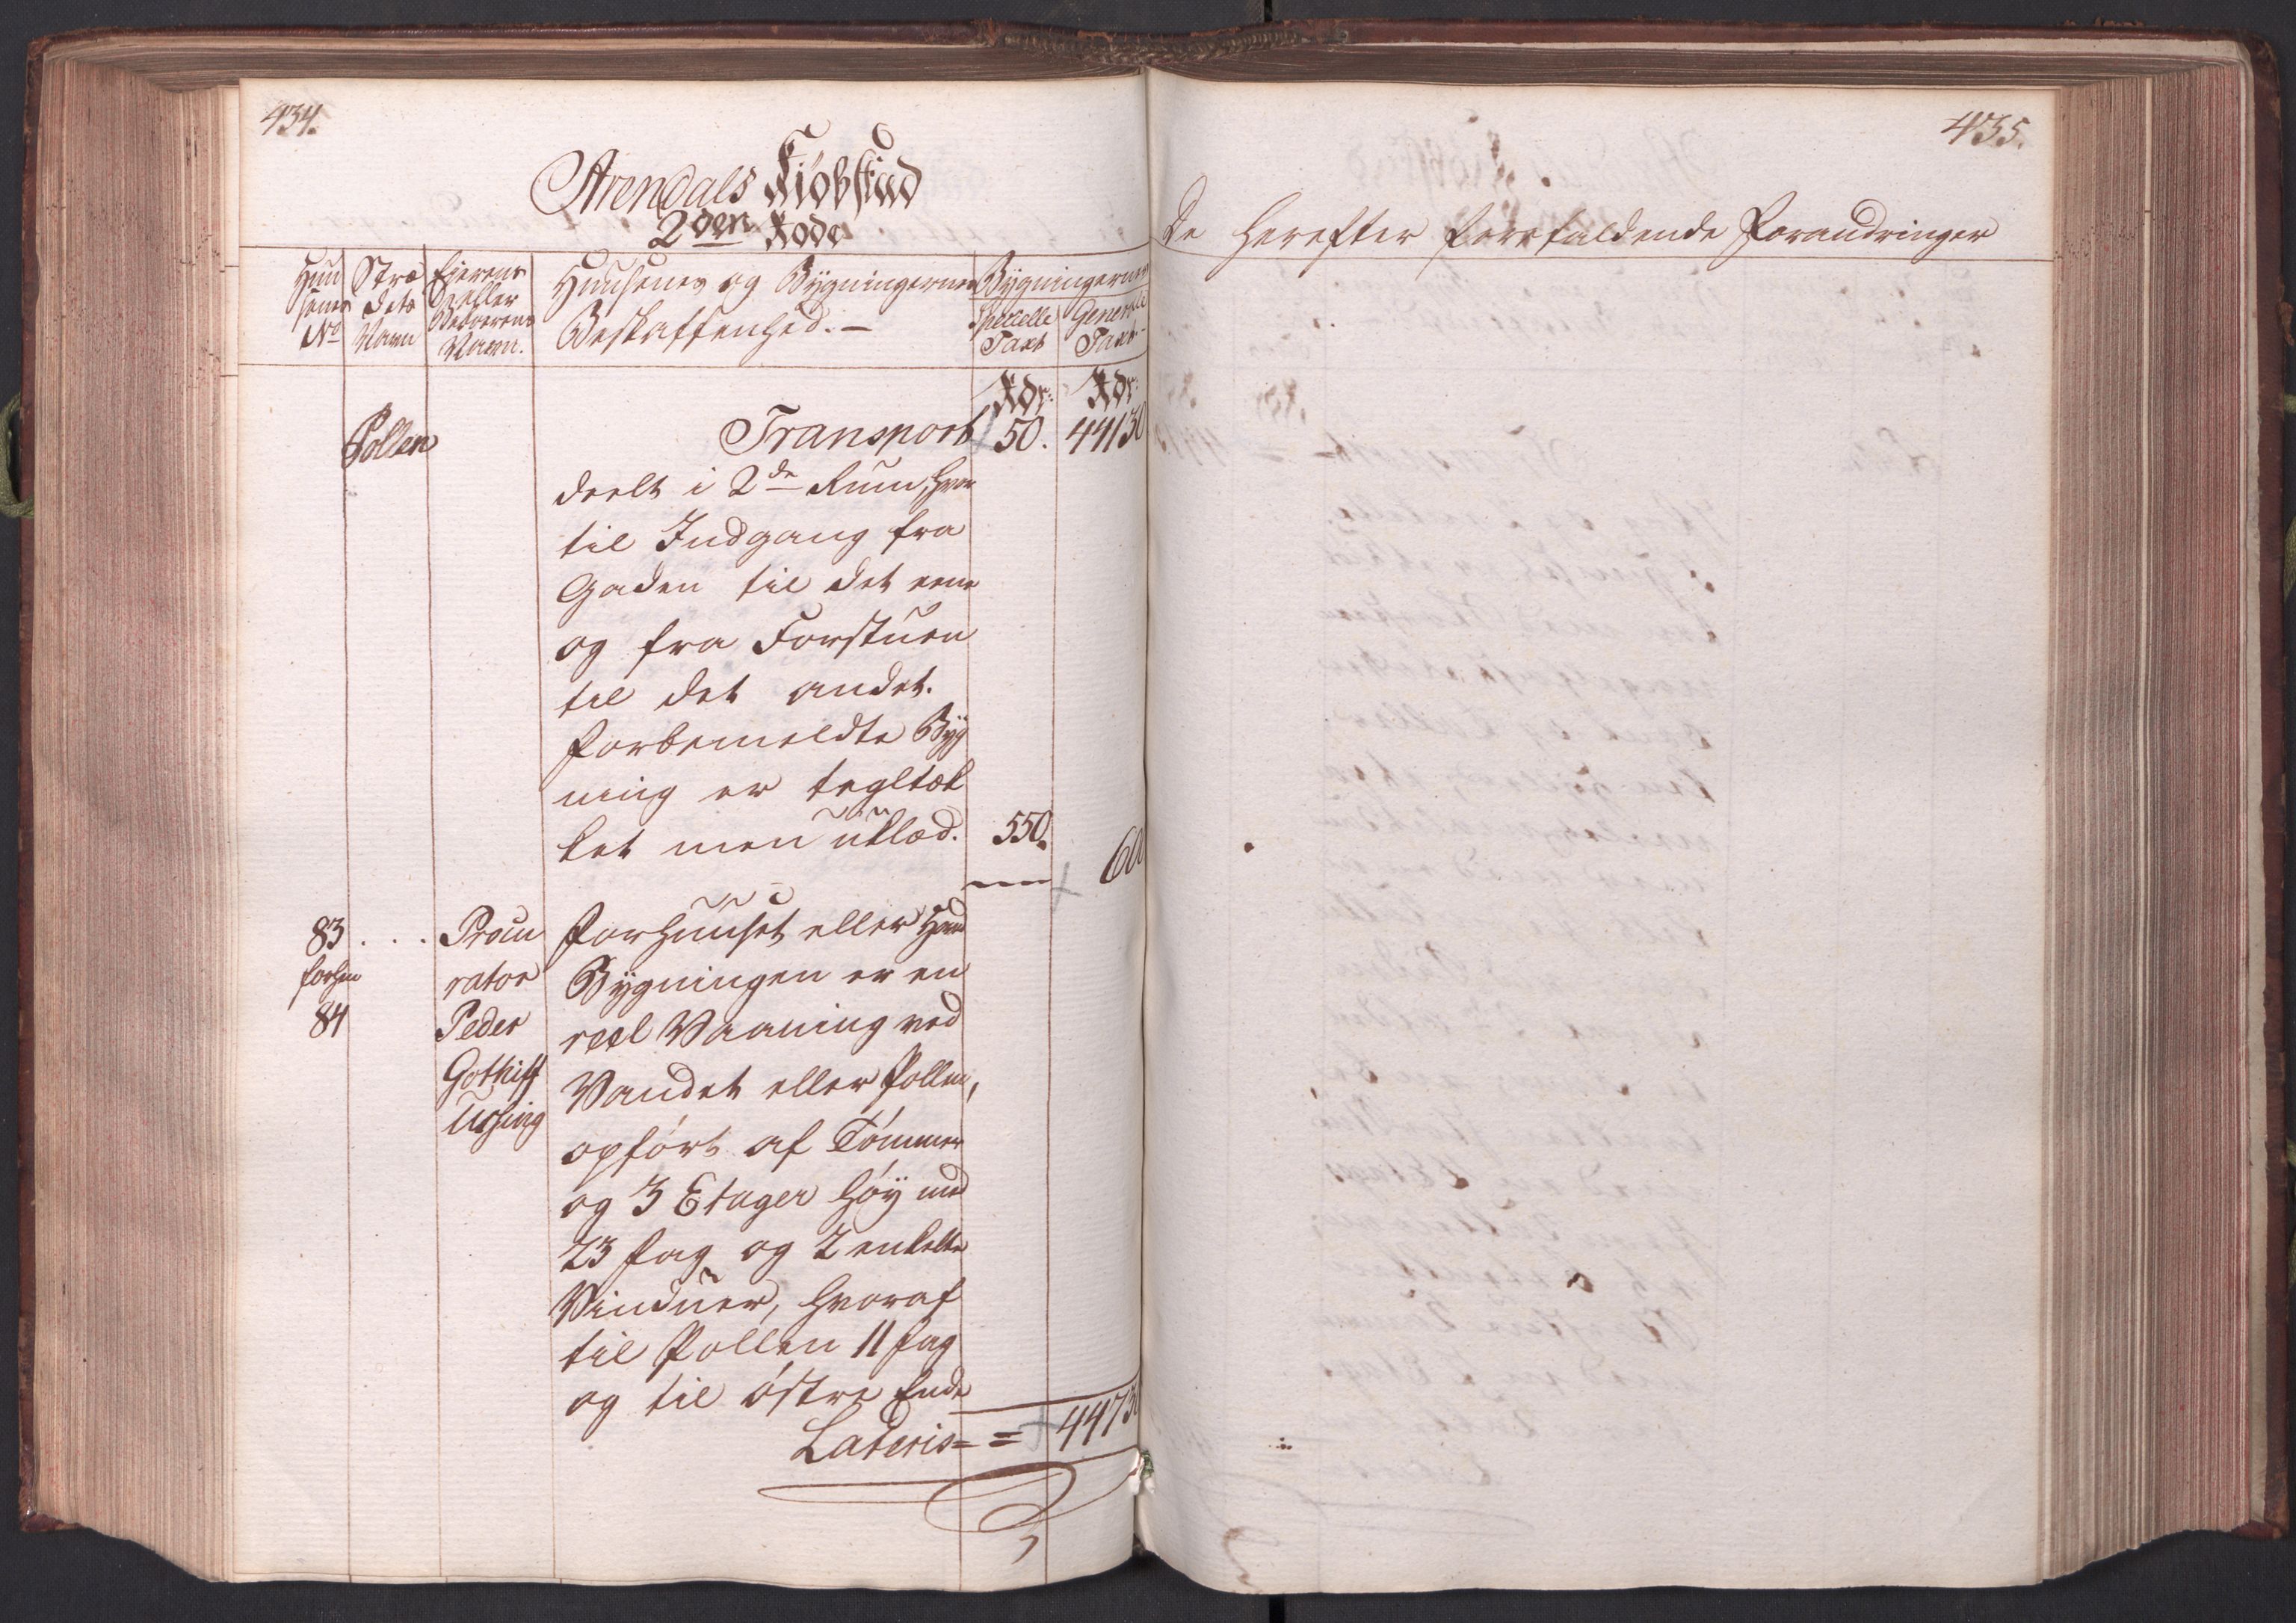 434.
Arendals Kiöbstæd
2den Rode
Huu
senes
No
Stræ
dets
Navn
Eierens
eller
Beboerens
Navn.
Huusenes og Bygningernes
Beskaffenhed. —
Bygningernes
Specielle
Taxt
Generale
Taxt
Rdr: Rdr:
Pollen Transport 50. 44130
deelt i 2de Rum, hvor
til Indgang fra
Gaden til det eene
og fra Forstuen
til det andet.
Forbemeldte Byg
ning er tegltæk
ket men uklæd. 550.
600
83 . . . Procu Forhuuset eller Hoved
forhen rator Bygningen er en
84 Peder reel Vaaning ved
Gothilf Vandet eller Pollen,
Ussing
opført af Tømmer
og 3 Etager høy med
23 fag og 2 enkelte
Vinduer, hvoraf
til Pollen 11 fag
og til østre Ende
Lateris = = 44730
435.
De herefter forefaldende Forandringer